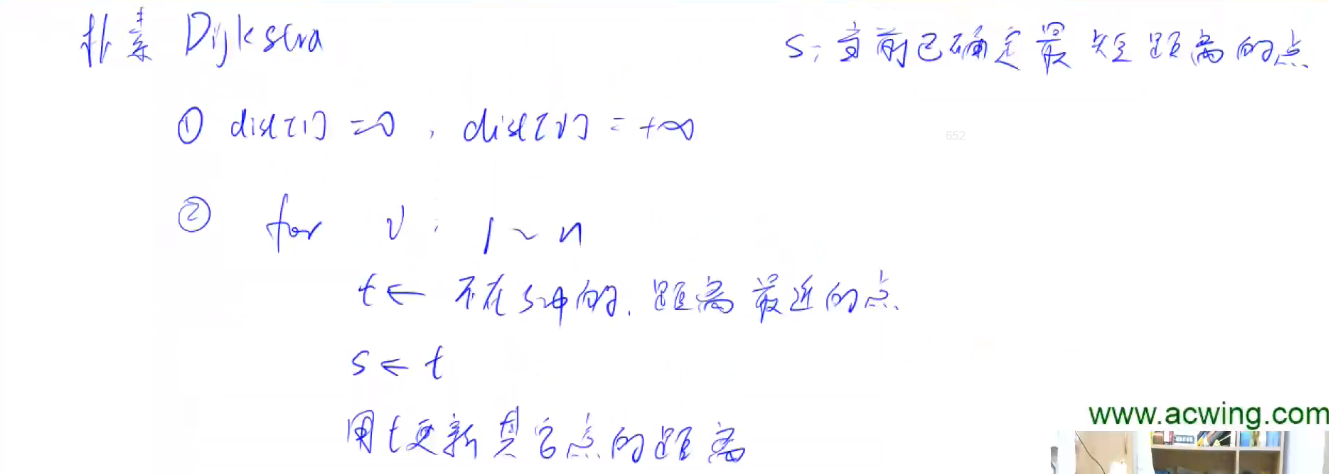 朴素 Dijkstra
S: 当前已确定最短距离的点
① dist[1] = 0, dist[i] = +∞
652
② for i: 1 ~ n
t ← 不在s中的, 距离最近的点.
s ← t
用t更新其它点的距离
www.acwing.com